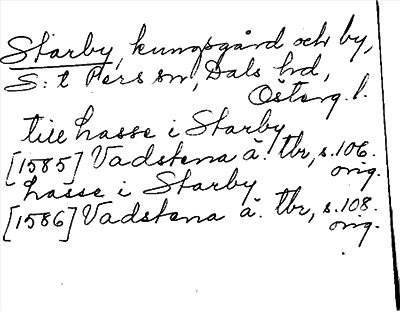 Starby, kungsgård och by,
S:t Pers sn, Dals hd,
Österg. l.
till hasse i Starby
[1585] Vadstena ä. tbr, s. 106.
orig.
hasse i Starby
[1586] Vadstena ä. tbr, s. 108.
orig.